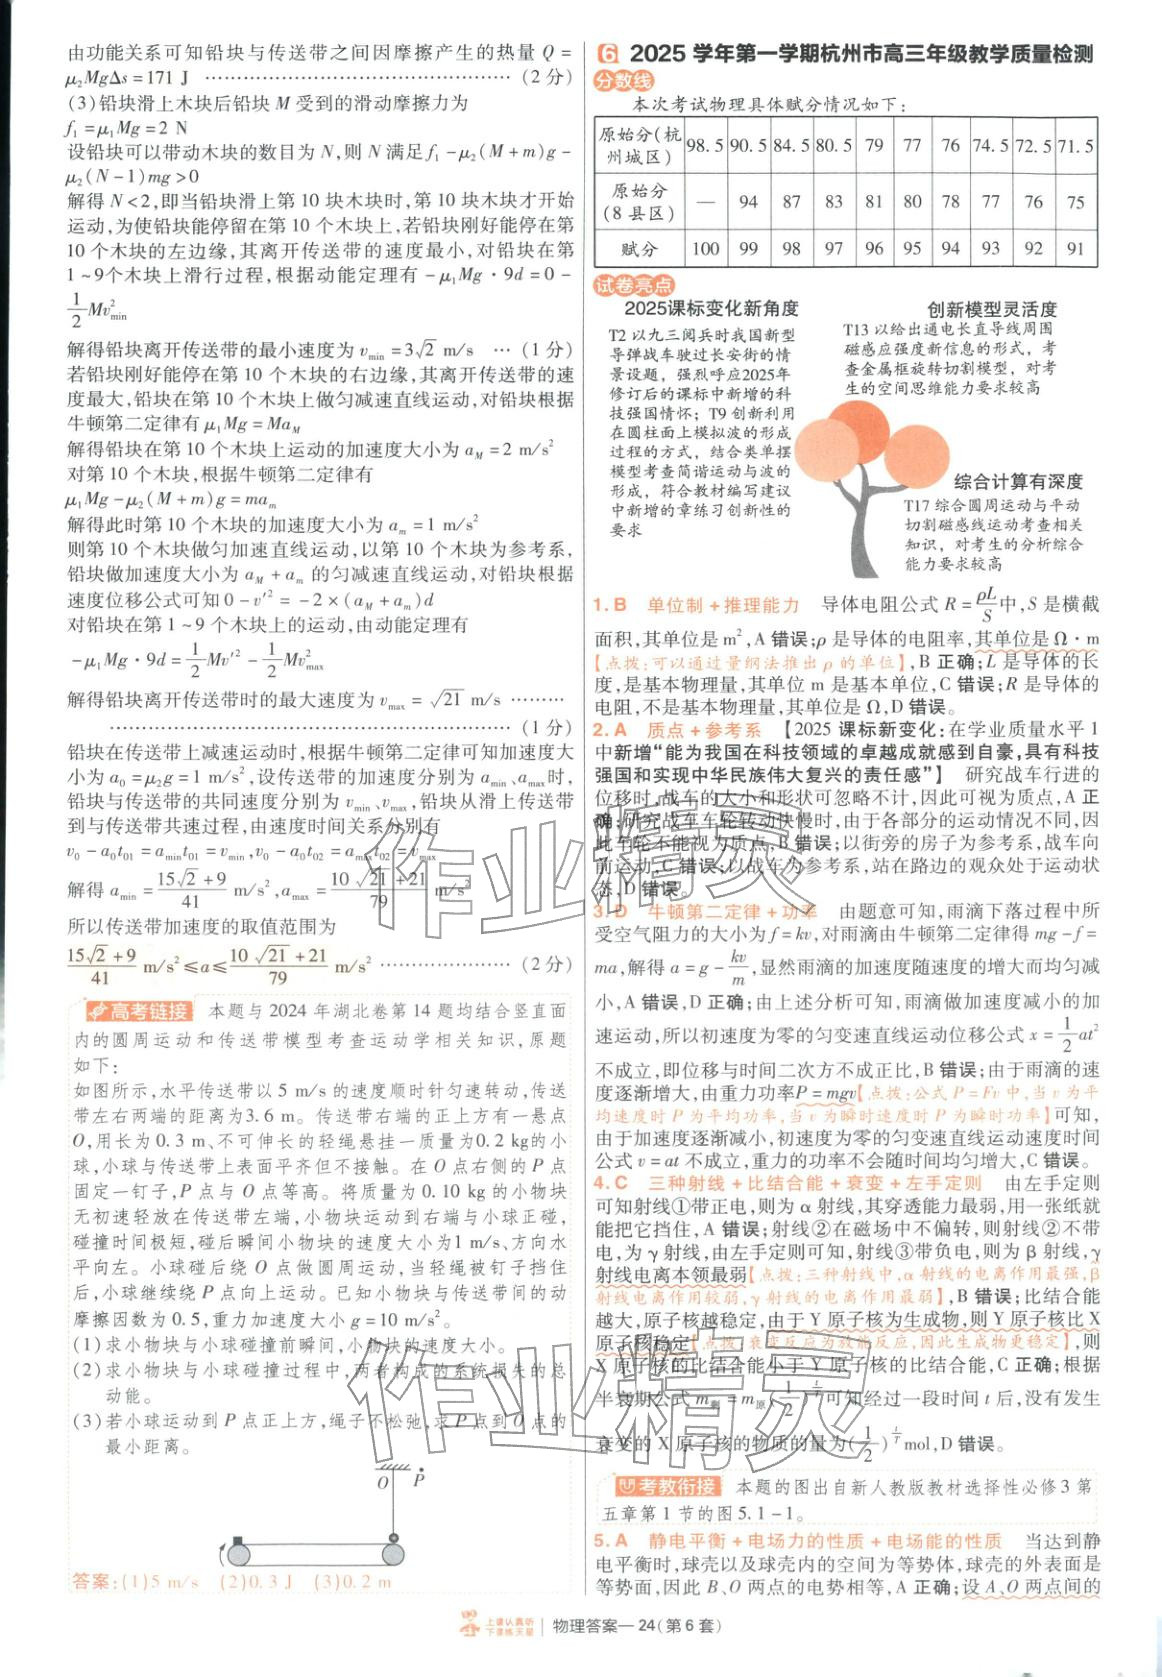 由功能关系可知铅块与传送带之间因摩擦产生的热量 Q =
μ₂MgΔs = 171 J ………………………………… (2 分)
(3)铅块滑上木块后铅块 M 受到的滑动摩擦力为
f₁ = μ₁Mg = 2 N
设铅块可以带动木块的数目为 N,则 N 满足 f₁ - μ₂(M + m)g -
μ₂(N - 1)mg > 0
解得 N < 2,即当铅块滑上第 10 块木块时,第 10 块木块才开始
运动,为使铅块能停留在第 10 个木块上,若铅块刚好能停在第
10 个木块的左边缘,其离开传送带的速度最小,对铅块在第
1 ~ 9个木块上滑行过程,根据动能定理有 - μ₁Mg · 9d = 0 -
1/2 Mv²min
解得铅块离开传送带的最小速度为 vmin = 3√2 m/s … (1 分)
若铅块刚好能停在第 10 个木块的右边缘,其离开传送带的速
度最大,铅块在第 10 个木块上做匀减速直线运动,对铅块根据
牛顿第二定律有 μ₁Mg = MaM
解得铅块在第 10 个木块上运动的加速度大小为 aM = 2 m/s²
对第 10 个木块,根据牛顿第二定律有
μ₁Mg - μ₂(M + m)g = mam
解得此时第 10 个木块的加速度大小为 am = 1 m/s²
则第 10 个木块做匀加速直线运动,以第 10 个木块为参考系,
铅块做加速度大小为 aM + am 的匀减速直线运动,对铅块根据
速度位移公式可知 0 - v′² = - 2 × (aM + am)d
对铅块在第 1 ~ 9 个木块上的运动,由动能定理有
- μ₁Mg · 9d = 1/2 Mv′² - 1/2 Mv²max
解得铅块离开传送带时的最大速度为 vmax = √21 m/s ………
………………………………………… (1 分)
铅块在传送带上减速运动时,根据牛顿第二定律可知加速度大
小为 a₀ = μ₂g = 1 m/s²,设传送带的加速度分别为 amin、amax时,
铅块与传送带的共同速度分别为 vmin、vmax,铅块从滑上传送带
到与传送带共速过程,由速度时间关系分别有
v₀ - a₀t₀₁ = amint₀₁ = vmin,v₀ - a₀t₀₂ = amaxt₀₂ = vmax
解得 amin = (15√2 + 9)/41 m/s²,amax = (10√21 + 21)/79 m/s²
所以传送带加速度的取值范围为
(15√2 + 9)/41 m/s² ≤ a ≤ (10√21 + 21)/79 m/s² ……………… (2 分)
高考链接 本题与 2024 年湖北卷第 14 题均结合竖直面
内的圆周运动和传送带模型考查运动学相关知识,原题
如下:
如图所示,水平传送带以 5 m/s 的速度顺时针匀速转动,传送
带左右两端的距离为3.6 m。传送带右端的正上方有一悬点
O,用长为 0.3 m、不可伸长的轻绳悬挂一质量为0.2 kg的小
球,小球与传送带上表面平齐但不接触。在 O 点右侧的 P 点
固定一钉子,P 点与 O 点等高。将质量为 0.10 kg 的小物块
无初速轻放在传送带左端,小物块运动到右端与小球正碰,
碰撞时间极短,碰后瞬间小物块的速度大小为1 m/s、方向水
平向左。小球碰后绕 O 点做圆周运动,当轻绳被钉子挡住
后,小球继续绕 P 点向上运动。已知小物块与传送带间的动
摩擦因数为 0.5,重力加速度大小 g = 10 m/s²。
(1)求小物块与小球碰撞前瞬间,小物块的速度大小。
(2)求小物块与小球碰撞过程中,两者构成的系统损失的总
动能。
(3)若小球运动到 P 点正上方,绳子不松弛,求 P 点到 O 点的
最小距离。
O P
答案:(1)5 m/s (2)0.3 J (3)0.2 m
6 2025 学年第一学期杭州市高三年级教学质量检测
分数线
本次考试物理具体赋分情况如下:
原始分(杭州城区) 98.5 90.5 84.5 80.5 79 77 76 74.5 72.5 71.5
原始分(8 县区) — 94 87 83 81 80 78 77 76 75
赋分 100 99 98 97 96 95 94 93 92 91
试卷亮点
2025课标变化新角度
T2 以九三阅兵时我国新型
导弹战车驶过长安街的情
景设题,强烈呼应2025年
修订后的课标中新增的科
技强国情怀;T9 创新利用
在圆柱面上模拟波的形成
过程的方式,结合类单摆
模型考查简谐运动与波的
形成,符合教材编写建议
中新增的章练习创新性的
要求
创新模型灵活度
T13 以给出通电长直导线周围
磁感应强度新信息的形式,考
查金属框旋转切割模型,对考
生的空间思维能力要求较高
综合计算有深度
T17 综合圆周运动与平动
切割磁感线运动考查相关
知识,对考生的分析综合
能力要求较高
1. B 单位制 + 推理能力 导体电阻公式 R = ρL/S 中,S 是横截
面积,其单位是 m²,A 错误;ρ 是导体的电阻率,其单位是 Ω · m
【点拨:可以通过量纲法推出 ρ 的单位】,B 正确;L 是导体的长
度,是基本物理量,其单位 m 是基本单位,C 错误;R 是导体的
电阻,不是基本物理量,其单位是 Ω,D 错误。
2. A 质点 + 参考系 【2025 课标新变化:在学业质量水平 1
中新增“能为我国在科技领域的卓越成就感到自豪,具有科技
强国和实现中华民族伟大复兴的责任感”】 研究战车行进的
位移时,战车的大小和形状可忽略不计,因此可视为质点,A 正
确;研究战车车轮转动快慢时,由于各部分的运动情况不同,因
此车轮不能视为质点,B 错误;以街旁的房子为参考系,战车向
前运动,C 错误;以战车为参考系,站在路边的观众处于运动状
态,D 错误。
3. D 牛顿第二定律 + 功率 由题意可知,雨滴下落过程中所
受空气阻力的大小为 f = kv,对雨滴由牛顿第二定律得 mg - f =
ma,解得 a = g - kv/m,显然雨滴的加速度随速度的增大而均匀减
小,A 错误,D 正确;由上述分析可知,雨滴做加速度减小的加
速运动,所以初速度为零的匀变速直线运动位移公式 x = 1/2 at²
不成立,即位移与时间二次方不成正比,B 错误;由于雨滴的速
度逐渐增大,由重力功率P = mgv【点拨:公式 P = Fv 中,当 v 为平
均速度时 P 为平均功率,当 v 为瞬时速度时 P 为瞬时功率】可知,
由于加速度逐渐减小,初速度为零的匀变速直线运动速度时间
公式 v = at 不成立,重力的功率不会随时间均匀增大,C 错误。
4. C 三种射线 + 比结合能 + 衰变 + 左手定则 由左手定则
可知射线①带正电,则为 α 射线,其穿透能力最弱,用一张纸就
能把它挡住,A 错误;射线②在磁场中不偏转,则射线②不带
电,为 γ 射线,由左手定则可知,射线③带负电,则为 β 射线,γ
射线电离本领最弱【点拨:三种射线中,α 射线的电离作用最强,β
射线电离作用较弱,γ 射线的电离作用最弱】,B 错误;比结合能
越大,原子核越稳定,由于 Y 原子核为生成物,则 Y 原子核比 X
原子核稳定【点拨:衰变反应为放能反应,因此生成物更稳定】,则
X 原子核的比结合能小于 Y 原子核的比结合能,C 正确;根据
半衰期公式 m剩 = m原(1/2)^(t/T)可知经过一段时间 t 后,没有发生
衰变的 X 原子核的物质的量为(1/2)^(t/T) mol,D 错误。
考教衔接 本题的图出自新人教版教材选择性必修 3 第
五章第 1 节的图 5.1 - 1。
5. A 静电平衡 + 电场力的性质 + 电场能的性质 当达到静
电平衡时,球壳以及球壳内的空间为等势体,球壳的外表面是
等势面,因此 B、O 两点的电势相等,A 正确;设 A、O 两点间的
上课认真听
下课练天星
物理答案—24(第 6 套)
作业精灵
作业精灵